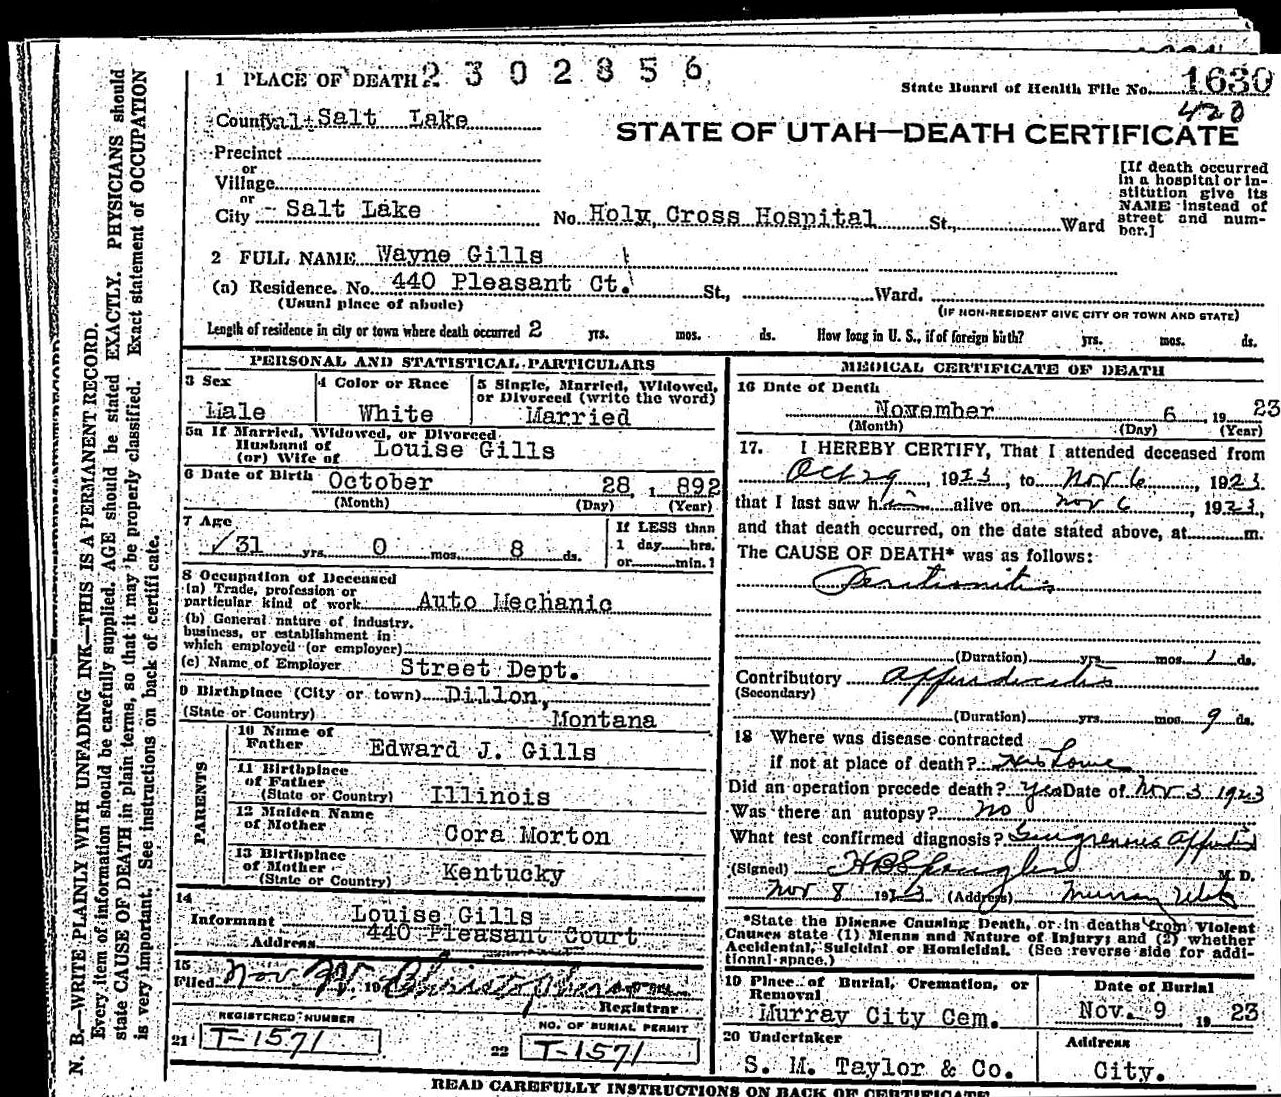 1 PLACE OF DEATH 2302856
State Board of Health File No. 1630
420
County Salt Lake
STATE OF UTAH—DEATH CERTIFICATE
Precinct
or
Village
or
City Salt Lake No. Holy Cross Hospital St., Ward
[If death occurred in a hospital or institution give its NAME instead of street and number.]
2 FULL NAME Wayne Gills
(a) Residence. No. 440 Pleasant Ct. St., Ward.
(Usual place of abode) (IF NON-RESIDENT GIVE CITY OR TOWN AND STATE)
Length of residence in city or town where death occurred 2 yrs. mos. ds. How long in U. S., if of foreign birth? yrs. mos. ds.
PERSONAL AND STATISTICAL PARTICULARS
3 Sex
Male
4 Color or Race
White
5 Single, Married, Widowed, or Divorced (write the word)
Married
5a If Married, Widowed, or Divorced
Husband of
(or) Wife of Louise Gills
6 Date of Birth October 28, 1892
(Month) (Day) (Year)
7 Age
31 yrs. 0 mos. 8 ds.
If LESS than
1 day hrs.
or min.?
8 Occupation of Deceased
(a) Trade, profession or
particular kind of work Auto Mechanic
(b) General nature of industry,
business, or establishment in
which employed (or employer)
(c) Name of Employer Street Dept.
9 Birthplace (City or town) Dillon,
(State or Country) Montana
PARENTS
10 Name of
Father Edward J. Gills
11 Birthplace
of Father
(State or Country) Illinois
12 Maiden Name
of Mother Cora Morton
13 Birthplace
of Mother
(State or Country) Kentucky
14
Informant Louise Gills
Address 440 Pleasant Court
15
Filed Nov 19
Registrar
REGISTERED NUMBER
21 T-1571
NO. OF BURIAL PERMIT
22 T-1571
MEDICAL CERTIFICATE OF DEATH
16 Date of Death
November 6 1923
(Month) (Day) (Year)
17. I HEREBY CERTIFY, That I attended deceased from
Oct 29, 1923, to Nov 6, 1923.
that I last saw him alive on Nov 6, 1923,
and that death occurred, on the date stated above, at m.
The CAUSE OF DEATH* was as follows:
Peritonitis
(Duration) yrs. mos. 1 ds.
Contributory Appendicitis
(Secondary)
(Duration) yrs. mos. 9 ds.
18 Where was disease contracted
if not at place of death? His home
Did an operation precede death? Yes Date of Nov 3 1923
Was there an autopsy? no
What test confirmed diagnosis?
(Signed) M. D.
Nov 8 1923 (Address) Murray Utah
*State the Disease Causing Death, or in deaths from Violent
Causes state (1) Means and Nature of Injury; and (2) whether
Accidental, Suicidal or Homicidal. (See reverse side for addi-
tional space.)
19 Place of Burial, Cremation, or
Removal
Murray City Cem.
Date of Burial
Nov. 9 1923
20 Undertaker
S. M. Taylor & Co.
Address
City.
READ CAREFULLY INSTRUCTIONS ON BACK OF CERTIFICATE
N. B.—WRITE PLAINLY WITH UNFADING INK—THIS IS A PERMANENT RECORD.
Every item of information should be carefully supplied. AGE should be stated EXACTLY. PHYSICIANS should
state CAUSE OF DEATH in plain terms, so that it may be properly classified. Exact statement of OCCUPATION
is very important. See instructions on back of certificate.